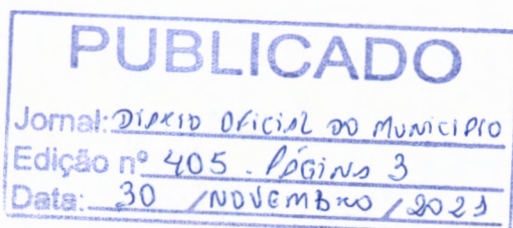 PUBLICADO
Jornal: DIÁRIO OFICIAL DO MUNICIPIO
Edição nº 405 - PÁGINA 3
Data: 30 / NOVEMBRO /